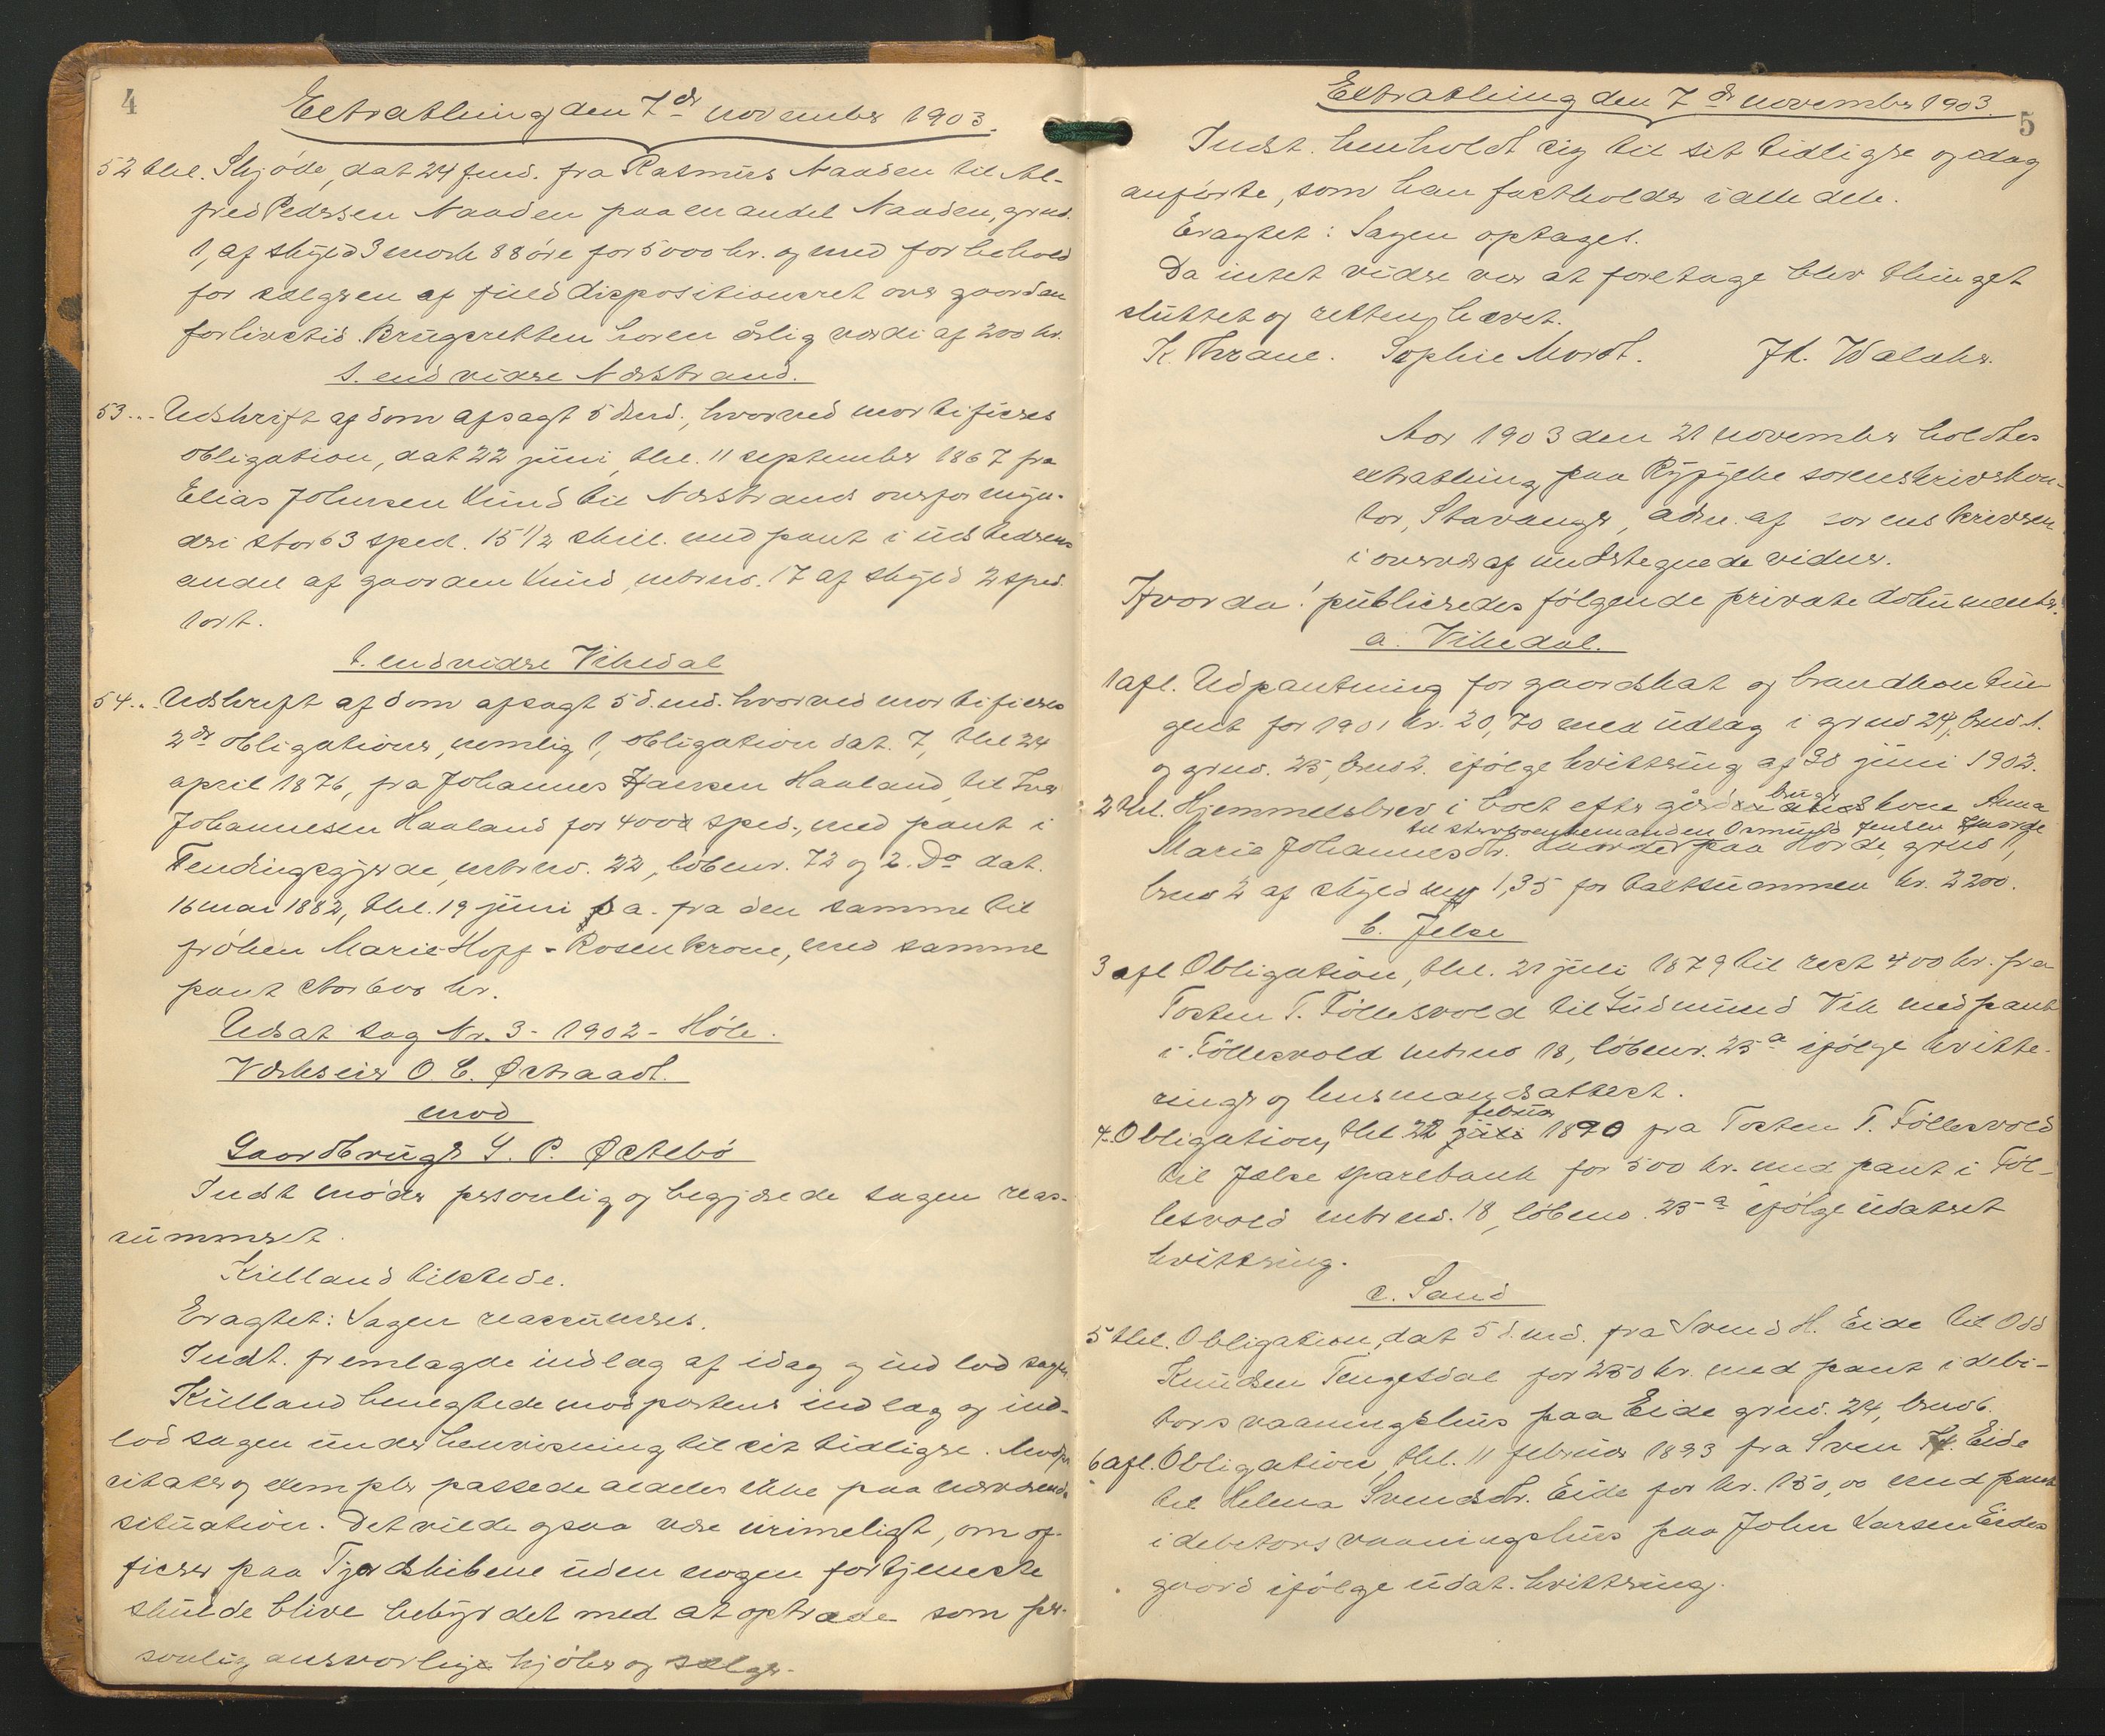 4
Extrathing den 7de november 1903.
52 thl. Skjøde, dat 24 f.md. fra Rasmus Naaden til Al-
fred Pedersen Naaden paa en andel Naaden, grno.
1, af skyld 3 mark 88 øre for 5000 kr. og med forbehold
for sælgeren af fuld dispositionsret over gaarden
for livstid. Brugsretten har en årlig værdi af 200 kr.
s. endvidre Nærstrand.
53... Udskrift af dom afsagt 5 dms., hvorved mortificeres
obligation, dat 22 juni, thl. 11 september 1867 fra
Elias Johnsen Kind til Nærstrands overformyn-
deri stor 63 sped. 15 1/2 skill. med pant i udstederens
andel af gaarden Kind, mtrno. 17 af skyld 2 sped.
1 ort.
t. endvidre Vikedal
54... Udskrift af dom afsagt 5 d. md. hvorved mortificeres
2de obligationer, nemlig 1, obligation dat. 7, thl 24
april 1876, fra Johannes Hansen Haaland til Iver
Johannesen Haaland for 400 sped., med pant i
Fendingsgjerde, mtrno. 22, løbenr. 72 og 2. Do dat.
16 mai 1882, thl. 19 juni s. a. fra den samme til
frøken Marie Hopp-Rosenkrone, med samme
pant stor 600 kr.
Udsat sag Nr. 3 - 1902 - Høle.
Værkseier O. C. Østraadt.
mod
Gaardbruger S. P. Østebø
Indst møder personlig og begjærede sagen reas-
summeret.
Kielland tilstede.
Eragtet: Sagen reassumeres.
Indst. fremlagde indlæg af idag og indlod sagen
Kielland benegtede modpartens indlæg og ind-
lod sagen under henvisning til sit tidligere. Modp.
citater og exempler passede aldeles ikke paa nærværende
situation. Det vilde ogsaa være urimeligt, om of-
ficerer paa Fjordskibene uden nogen fortjeneste
skulde blive bebyrdet med at optræde som per-
sonlig ansvarlige kjøber og sælger.
Extrathing den 7de november 1903.
5
Indst. henholdt sig til sit tidligere og idag
anførte, som han fastholder i alle dele.
Eragtet: Sagen optages.
Da intet videre var at foretage blev thinget
sluttet og retten hævet.
K. Thrane. Sophie Mordt. Jh. Walche.
Aar 1903 den 21 november holdtes
extrathing paa Ryfylke sorenskriverkon-
tor, Stavanger, adm. af sorenskriveren
i overvær af undertegnede vidner.
Hvorda! publiceredes følgende private dokumenter.
a. Vikedal.
1 afl. Udpantning for gaardskat og brandkontin-
gent for 1901 kr. 20,70 med udlæg i grno 24, brno 1.
og grno. 25, brno 2. ifølge kvittering af 30 juni 1902.
2 thl. Hjemmelsbrev i boet efter gårdbrugerskone Anna
til stervboenkemanden Ormund Jensen Hørde
Marie Johannesdr. paa Hørde, grno 11,
brno 2 af skyld mrk 1,35 for taxtsummen kr. 2200.
b. Jelse
3 afl Obligation, thl. 21 juli 1879 til rest 400 kr. fra
Tosten T. Føllesvold til Gudmund Vik med pant
i Føllesvold mtrno 18, løbenr. 25a ifølge kvitte-
ringer og lensmandsattest.
4.. Obligation, thl 22 februar 1890 fra Tosten T. Føllesvold
til Jælse sparebank for 500 kr. med pant i Føl-
lesvold mtrno. 18, løbeno. 25a ifølge udateret
kvittering.
c. Sand
5 thl. Obligation, dat 5 d. md. fra Svend H. Eide til Odd
Knudsen Tengesdal for 250 kr. med pant i debi-
tors vaaningshus paa Eide grno. 24, brno 6.
6 afl. Obligation, thl. 11 februar 1893 fra Sven H. Eide
til Helena Svendsdr. Eide for kr. 150,00 med pant
i debitors vaaningshus paa John Larsen Eides
gaard ifølge udat. kvittering.